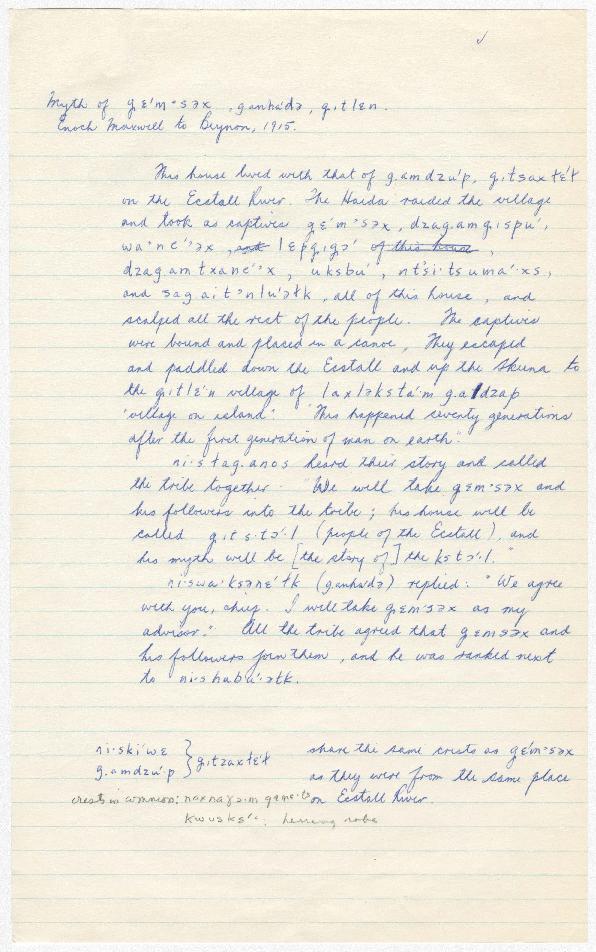 Myth of gɛ'm·səx, ganha'də, g.ıtlɛn.
Enoch Maxwell to Beynon, 1915.
This house lived with that of g.amdzu'p, g.ıtsaxłɛ'ł
on the Ecstall River. The Haida raided the village
and took as captives gɛ'm·səx, dzag.amgıspu',
wa·ne'·əx, and lɛpgıgə' of this house,
dzagamtxane'·x, uksbu',
and sagaıt'ənlu'əłk, all of this house, and
scalped all the rest of the people. The captives
were bound and placed in a canoe. They escaped
and paddled down the Ecstall and up the Skeena to
the g.ıtlɛ'n village of laxləksta'm g.aldzap
'village on island'. "This happened seventy generations
after the first generation of man on earth".
nı·stag.anos heard their story and called
the tribe together. "We will take gɛm·səx and
his followers into the tribe; his house will be
called g.ıts·tə'·l (people of the Ecstall), and
his myth will be [the story of] the kstə'·l."
nı·swa·ksəne'łk (ganha'də) replied: "We agree
with you, chief. I will take gɛm·səx as my
advisor." All the tribe agreed that gɛmsəx and
his followers join them, and he was ranked next
to nı·shabu'·ətk.
nı·skı'wɛ } g.ıtzaxłɛ'ł share the same crests as gɛ'm·səx
g.amdzu'p as they were from the same place
crests in common: naxnaɣə·m game·ts on Ecstall River.
kwusks'·: herring robe